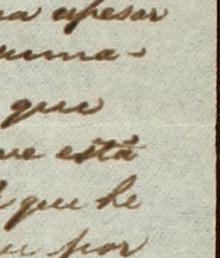 na apesar
uma-
que
ue está
que he
u por